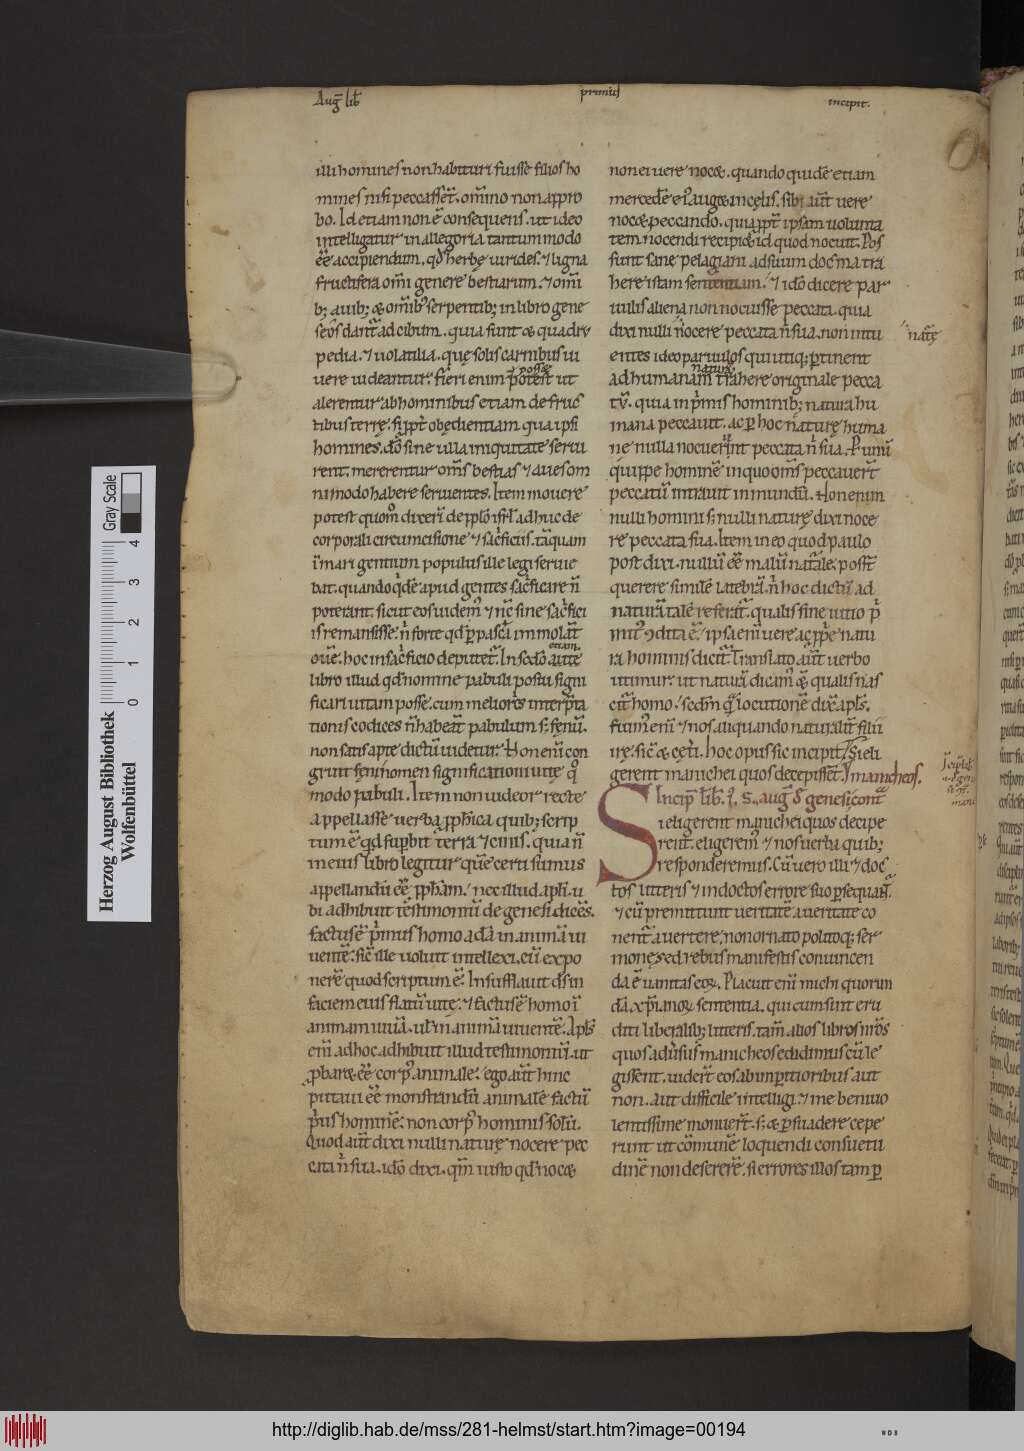 Aug̅ lib̅ primus incipit.
illi homines non habituri fuisse filios ho
mines nisi peccassēt. om̅ino non appro
bo. Id etiam non ē consequens. ut ideo
intelligatur in allegoria tantummodo
ēē accipiendum, qd̓ herbę uirides. ⁊ ligna
fructifera om̅i genere bestiarum. ⁊ om̅i
b; auib; & om̅ib; serpentib; in libro gene
seos dant̅ ad cibum. quia sunt & quadru
pedia. ⁊ uolatilia. quę solis carnibus ui
uere uideantur. fieri enim potest ut
posset
alerentur ab hominibus etiam de fruc
tibus terrę. si ꝓpt̅ obędientiam qua ipsi
homines. dō sine ulla iniquitate serui
rent. mererentur om̅s bestias ⁊ aues om
nimodo habere seruientes. Item mouere
potest quom̊ dixeri de pp̅lo isrl̅ adhuc de
corporali circumcisione ⁊ sac̓ficiis. tā quam
i̓ mari gentium populus ille legi seruie
bat. quando qd̓ē apud gentes sac̓ficare n̅
poterant. sicut eos uidem̓ ⁊ nc̅ sine sac̓fici
is remansisse. n̓ forte qd̓ ꝑ pascā immolat̅
ouē. hoc in sac̓ficio deputet̅. In sc̅do autē
etiam
libro illud qd̓ nomine pabuli postui signi
ficari uitam posse. cum meliores interp̓ta
tionis codices n̓ habeāt pabulum s; fęnū.
non satis apte dictū uidetur. Non em̅ con
gruit fęni nomen significationi uitę q̊
modo pabuli. Item non uideor recte
appellasse uerba ꝓphica quib; scrip
tum ē. qd̓ supbit terra ⁊ cinis. quia n̅
in eius libro legitur quē certi sumus
appellandū ēē ꝓphām. nec illud apl̅i. u
bi adhibuit testimoniū de genesi dicēs.
factus ē p̓mus homo adā in animā ui
uentē. sic̅ ille uoluit intellexi. cū expo
nere quod scriptum ē. Insufflauit d̅s in
faciem eius flatū uitę. ⁊ factus ē homo i̅
animam uiuā. ul̅ in animā uiuentē. Apl̅s
em̅ ad hoc adhibuit illud testimoniū. ut
ꝓbaret ēē corp̓ animale. ego aut̅ hinc
putaui ēē monstrandū animalē factū
p̓us hominē. non corp̓ hominis solū.
Quod aut̅ dixi nulli naturę nocere pec
cata n̓ sua. idō dixi. qm̅ iusto qd̓ nocet
non ei uere nocet. quando quidē etiam
mercedē ei̓ auget in cęlis. sibi aut̅ uere
nocet peccando. quia ꝓpt̅ ipsam uolunta
tem nocendi recipiet id quod nocuit. Pos
sunt sane pelagiani ad suum docma tra
here istam sententiam. ⁊ idō dicere par
uulis aliena non nocuisse peccata. quia
dixi nulli nocere peccata n̓ sua. non intu
natę
entes ideo paruulos qui utiq; ꝑtinent
naturā
ad humanam trahere originale pecca
tū. quia in p̓mis hominib; natura hu
mana peccauit. ac ꝑ hoc naturę huma
nę nulla nocuerint peccata n̓ sua. Per unū
quippe hominē in quo om̅s peccauert̅
peccatū intrauit in mundū. Non enim
nulli homini s; nulli naturę dixi noce
re peccata sua. Item in eo quod paulo
post dixi. nullū ēē malū naturale. posst̅
querere similē latebrā. n̓ hoc dictū ad
naturā talē referat̅. qualis sine uitio p̓
mit̓ ꝯdita ē. ipsa em̅ uere ac ꝓp̓e natu
ra hominis dicit̅. Translato aut̅ uerbo
utimur. ut naturā dicam̓ & qualis nas
cit̅ homo. sc̅dm qā locutionē dix̅ apl̅s.
fuim̓ em̅ ⁊ nos aliquando naturalit̅ filii
irę. sic̅ & cęt̅i. hoc opus sic incipit. Si eli
gerent manichei quos decepissēt. manicheos.
Incip̅ lib̅. s. aug̅ d̅ genesi cont̅
Si eligerent manichei quos decipe
rent. eligerem̓ ⁊ nos uerba quib;
responderemus. Cū uero illi ⁊ doc
tos litteris ⁊ indoctos errore suo ꝑsequant̅.
⁊ cū premittunt ueritatē a ueritate co
nent̅ auertere. non ornato politoq; ser
mone. sed rebus manifestis conuincen
da ē uanitas eoꝝ. Placuit em̅ michi quorun
dā xp̅ianoꝝ sententia. qui cum sint eru
diti liberalib; litteris. tam̅ alios libros nr̅os
quos adu̓sus manicheos edidimus cū le
gissent. uidert̅ eos ab imperitioribus aut
non. aut difficile intelligi. ⁊ me beniuo
lentissime monuert̅. s; & ꝑsuadere cepe
runt ut cōmunē loquendi consuetu
dinē non desererē. si errores illos tam ꝑ
Herzog August Bibliothek
Wolfenbüttel
0 1 2 3 4
Gray Scale
http://diglib.hab.de/mss/281-helmst/start.htm?image=00194